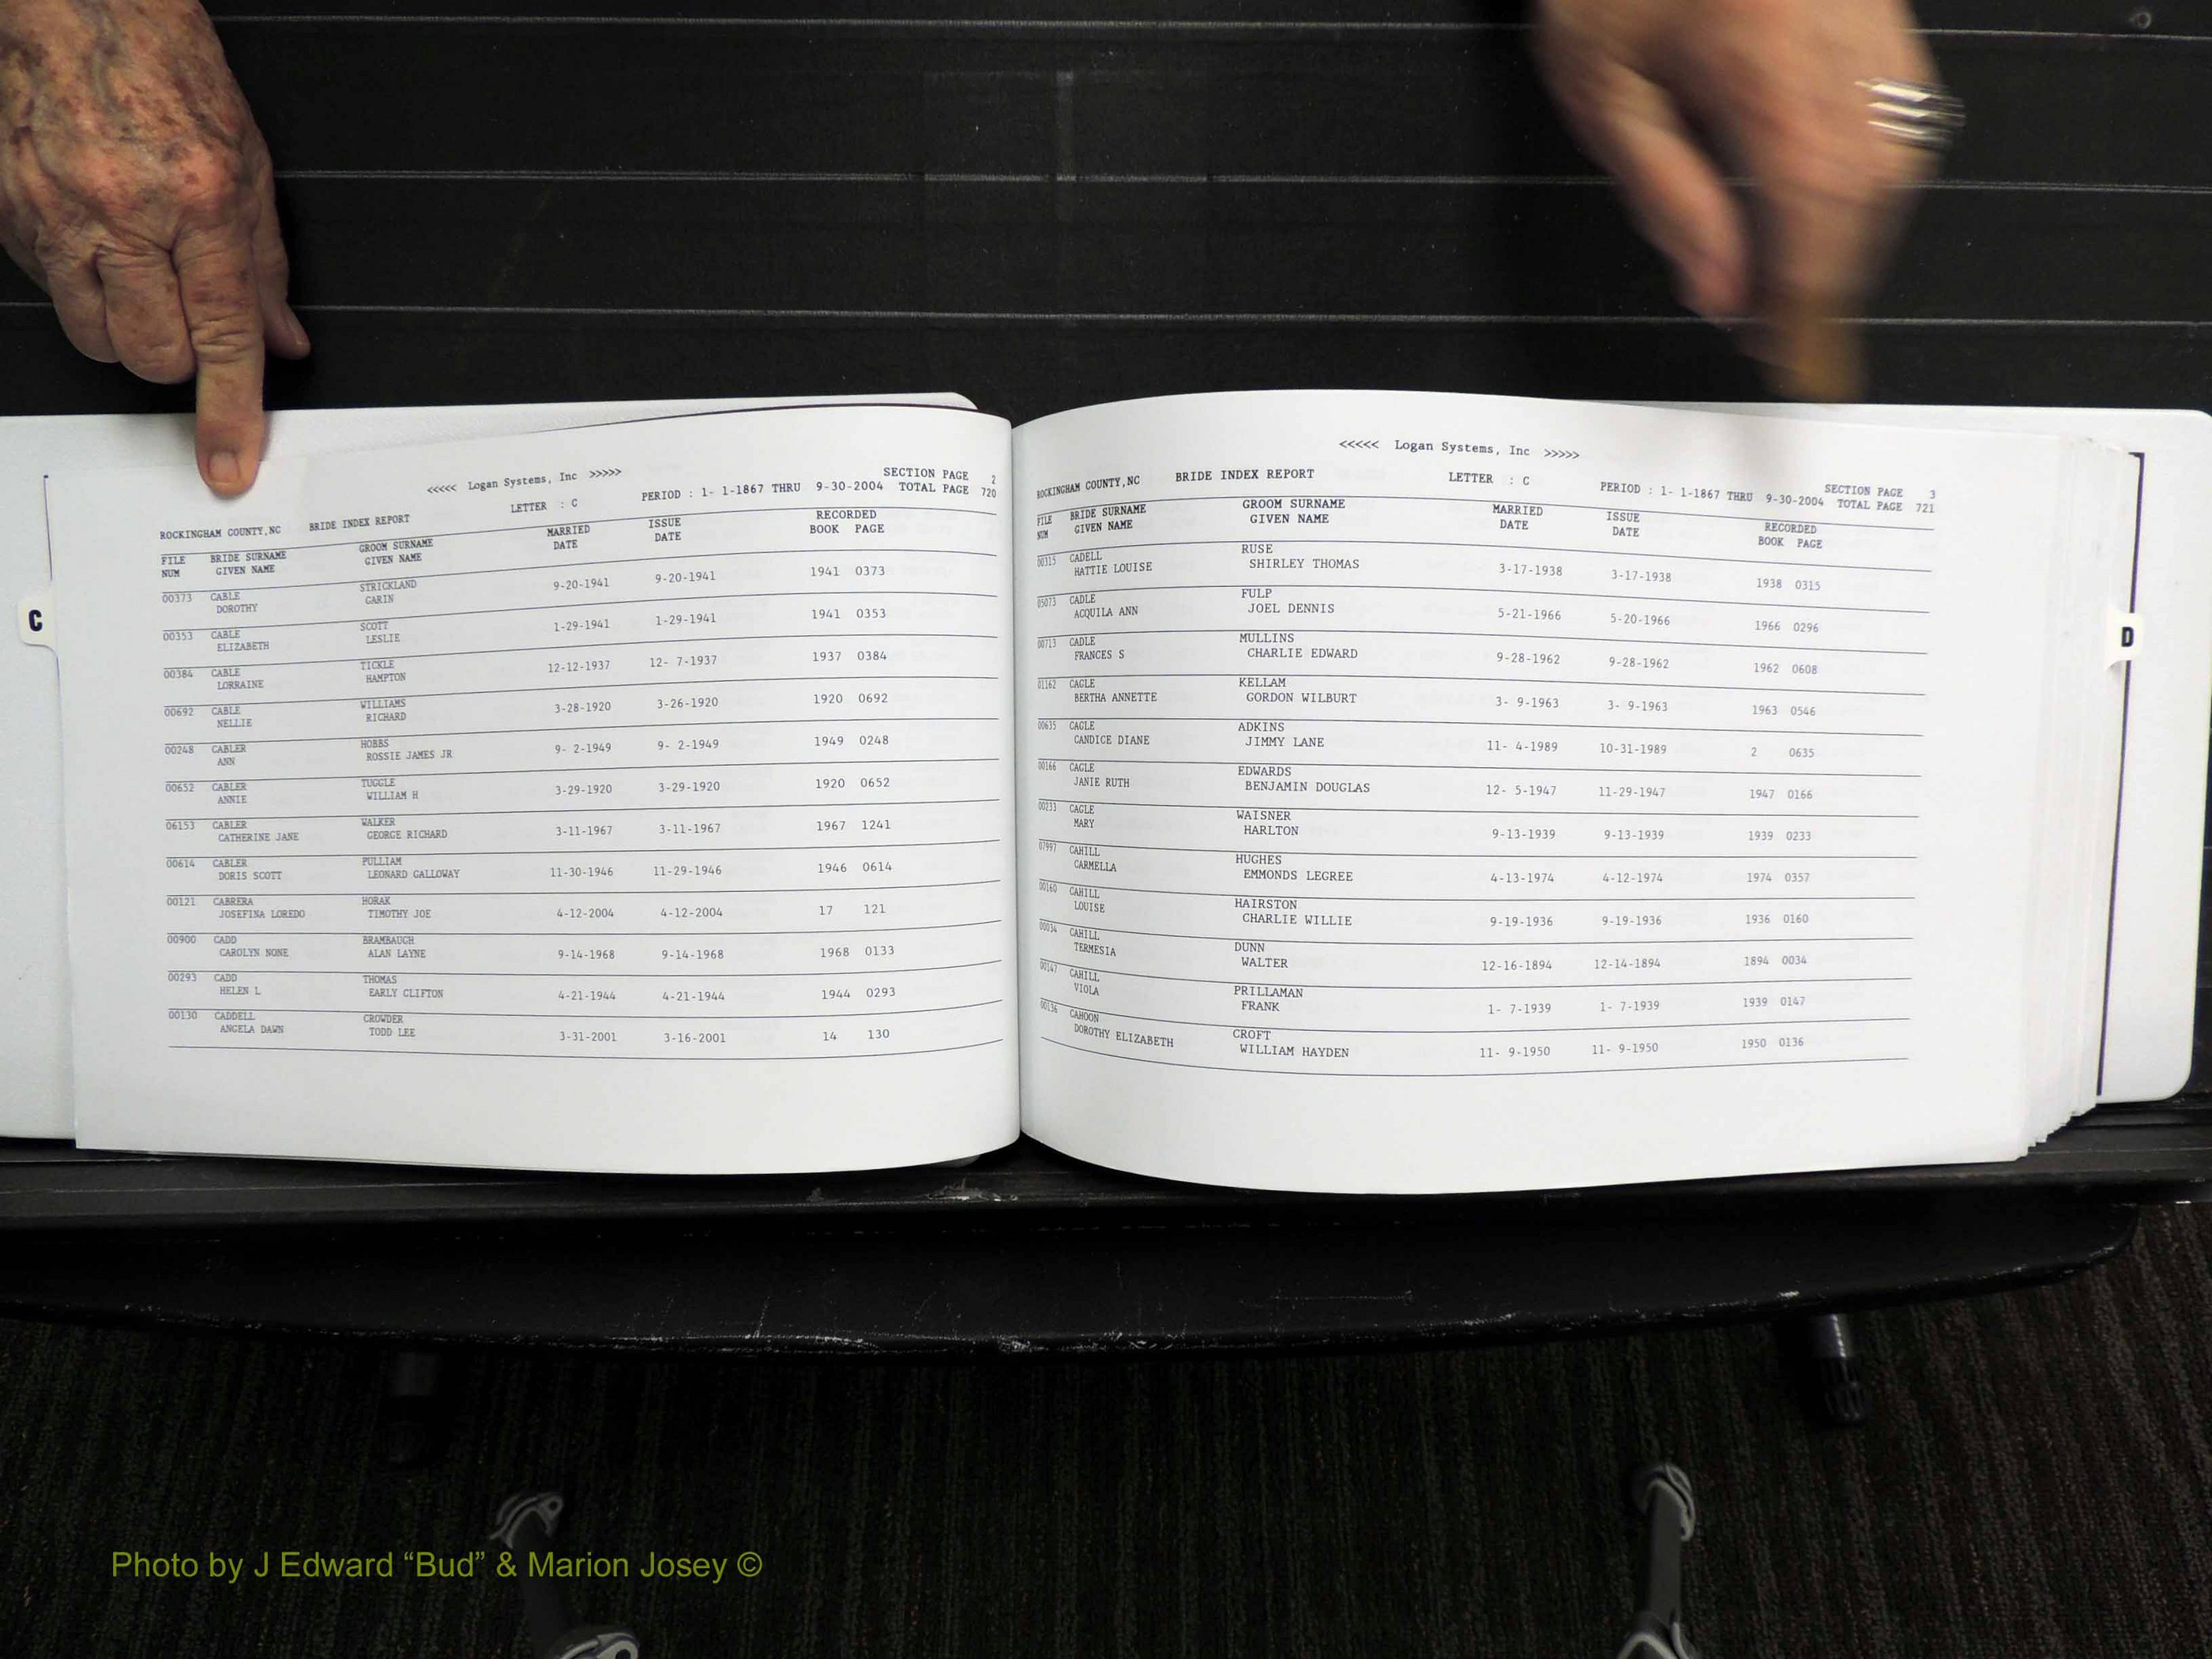 C
<<<<< Logan Systems, Inc >>>>>
SECTION PAGE 2
ROCKINGHAM COUNTY,NC BRIDE INDEX REPORT LETTER : C PERIOD : 1- 1-1867 THRU 9-30-2004 TOTAL PAGE 720
FILE BRIDE SURNAME GROOM SURNAME MARRIED ISSUE RECORDED
NUM GIVEN NAME GIVEN NAME DATE DATE BOOK PAGE
00373 CABLE STRICKLAND 9-20-1941 9-20-1941 1941 0373
DOROTHY GARIN
00353 CABLE SCOTT 1-29-1941 1-29-1941 1941 0353
ELIZABETH LESLIE
00384 CABLE TICKLE 12-12-1937 12- 7-1937 1937 0384
LORRAINE HAMPTON
00692 CABLE WILLIAMS 3-28-1920 3-26-1920 1920 0692
NELLIE RICHARD
00248 CABLER HOBBS 9- 2-1949 9- 2-1949 1949 0248
ANN ROSSIE JAMES JR
00652 CABLER TUGGLE 3-29-1920 3-29-1920 1920 0652
ANNIE WILLIAM H
06153 CABLER WALKER 3-11-1967 3-11-1967 1967 1241
CATHERINE JANE GEORGE RICHARD
00614 CABLER PULLIAM 11-30-1946 11-29-1946 1946 0614
DORIS SCOTT LEONARD GALLOWAY
00121 CABRERA HORAK 4-12-2004 4-12-2004 17 121
JOSEFINA LOREDO TIMOTHY JOE
00900 CADD BRAMBAUGH 9-14-1968 9-14-1968 1968 0133
CAROLYN NONE ALAN LAYNE
00293 CADD THOMAS 4-21-1944 4-21-1944 1944 0293
HELEN L EARLY CLIFTON
00130 CADDELL CROWDER 3-31-2001 3-16-2001 14 130
ANGELA DAWN TODD LEE
<<<<< Logan Systems, Inc >>>>>
SECTION PAGE 3
ROCKINGHAM COUNTY,NC BRIDE INDEX REPORT LETTER : C PERIOD : 1- 1-1867 THRU 9-30-2004 TOTAL PAGE 721
FILE BRIDE SURNAME GROOM SURNAME MARRIED ISSUE RECORDED
NUM GIVEN NAME GIVEN NAME DATE DATE BOOK PAGE
00315 CADELL RUSE 3-17-1938 3-17-1938 1938 0315
HATTIE LOUISE SHIRLEY THOMAS
05073 CADLE FULP 5-21-1966 5-20-1966 1966 0296
ACQUILA ANN JOEL DENNIS
00713 CADLE MULLINS 9-28-1962 9-28-1962 1962 0608
FRANCES S CHARLIE EDWARD
01162 CAGLE KELLAM 3- 9-1963 3- 9-1963 1963 0546
BERTHA ANNETTE GORDON WILBURT
00635 CAGLE ADKINS 11- 4-1989 10-31-1989 2 0635
CANDICE DIANE JIMMY LANE
00166 CAGLE EDWARDS 12- 5-1947 11-29-1947 1947 0166
JANIE RUTH BENJAMIN DOUGLAS
00233 CAGLE WAISNER 9-13-1939 9-13-1939 1939 0233
MARY HARLTON
07997 CAHILL HUGHES 4-13-1974 4-12-1974 1974 0357
CARMELLA EMMONDS LEGREE
00160 CAHILL HAIRSTON 9-19-1936 9-19-1936 1936 0160
LOUISE CHARLIE WILLIE
00034 CAHILL DUNN 12-16-1894 12-14-1894 1894 0034
TERMESIA WALTER
00147 CAHILL PRILLAMAN 1- 7-1939 1- 7-1939 1939 0147
VIOLA FRANK
00136 CAHOON CROFT 11- 9-1950 11- 9-1950 1950 0136
DOROTHY ELIZABETH WILLIAM HAYDEN
D
Photo by J Edward “Bud” & Marion Josey ©